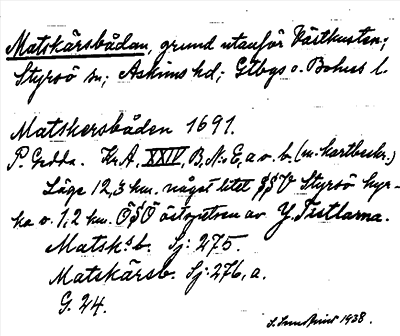 Matskärsbådan, grund utanför Västkusten;
Styrsö sn; Askims hd; Gtbgs o. Bohus l.
Matskersbåden 1691.
P. Gedda. Kr.A. XXIV, B, N:o E, a o. b. (m. kartbeskr.)
Läge 12,3 km. något litet SSV Styrsö kyr-
ka o. 1,2 km. ÖSÖ östspetsen av Y. Tistlarna.
Matsk:s b. Sj: 275.
Matskärsb. Sj: 276, a.
G. 24.
1938.